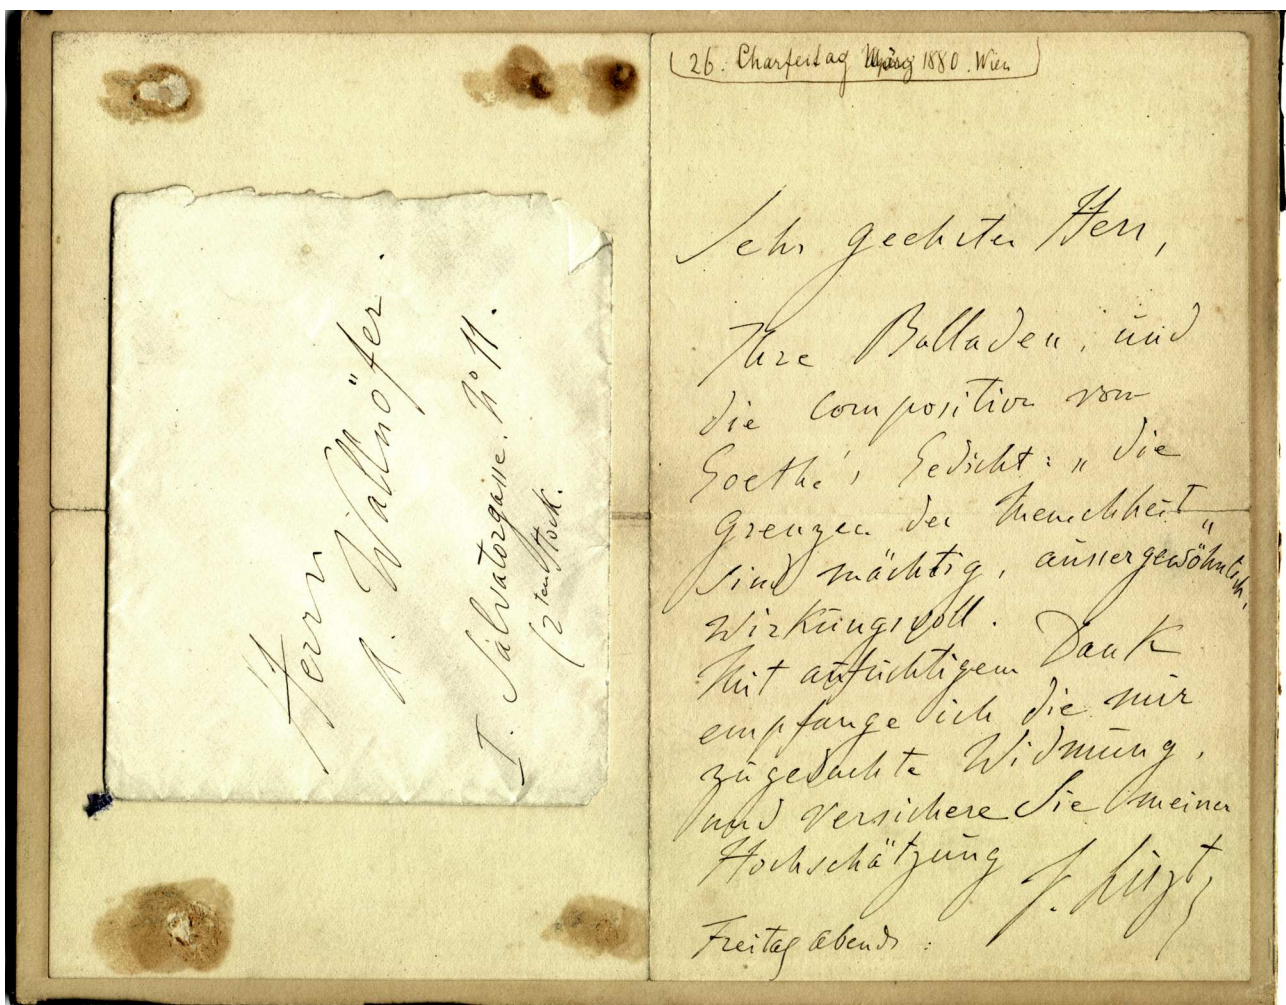 Herrn
A. Wallnöfer.
I. Salvatorgasse. No 11.
(2ten Stock.
26. Charfeitag März 1880. Wien
Sehr geehrter Herr,
Ihre Balladen, und
die Composition von
Goethe's Gedicht: „die
Grenzen der Menschheit"
sind mächtig, aussergewöhnlich,
wirkungsvoll.
Mit aufrichtigem Dank
empfange ich die mir
zugedachte Widmung,
und versichere Sie meiner
Hochschätzung
F. Liszt
Freitag abends.